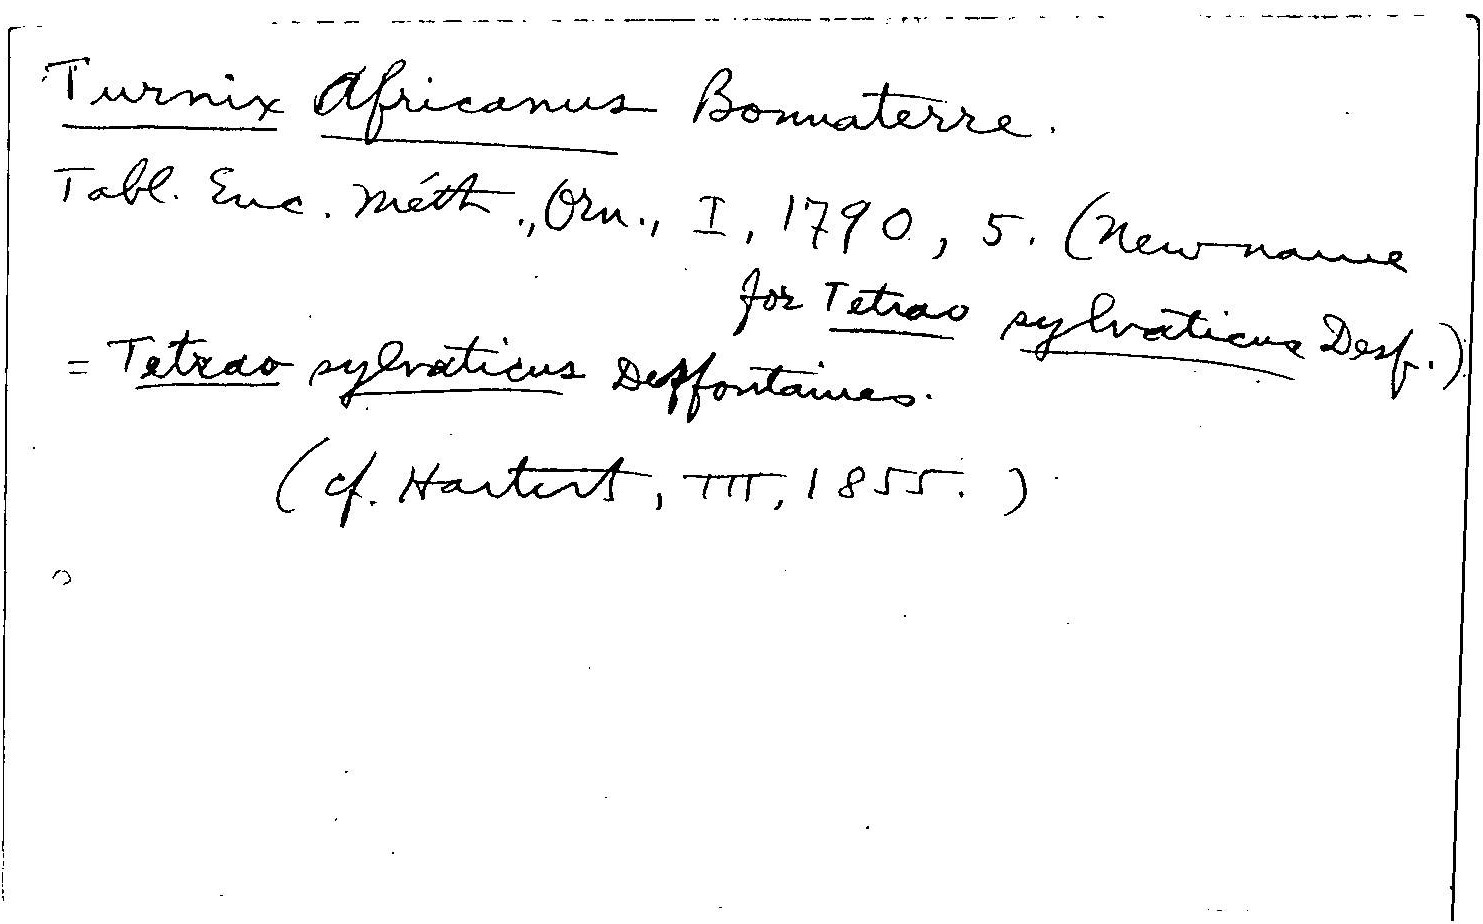 Turnix Africanus Bonnaterre.
Tabl. Enc. Méth., Orn., I, 1790, 5. (New name
for Tetrao sylvaticus Desf.)
= Tetrao sylvaticus Desfontaines.
(cf. Hartert, III, 1855.)